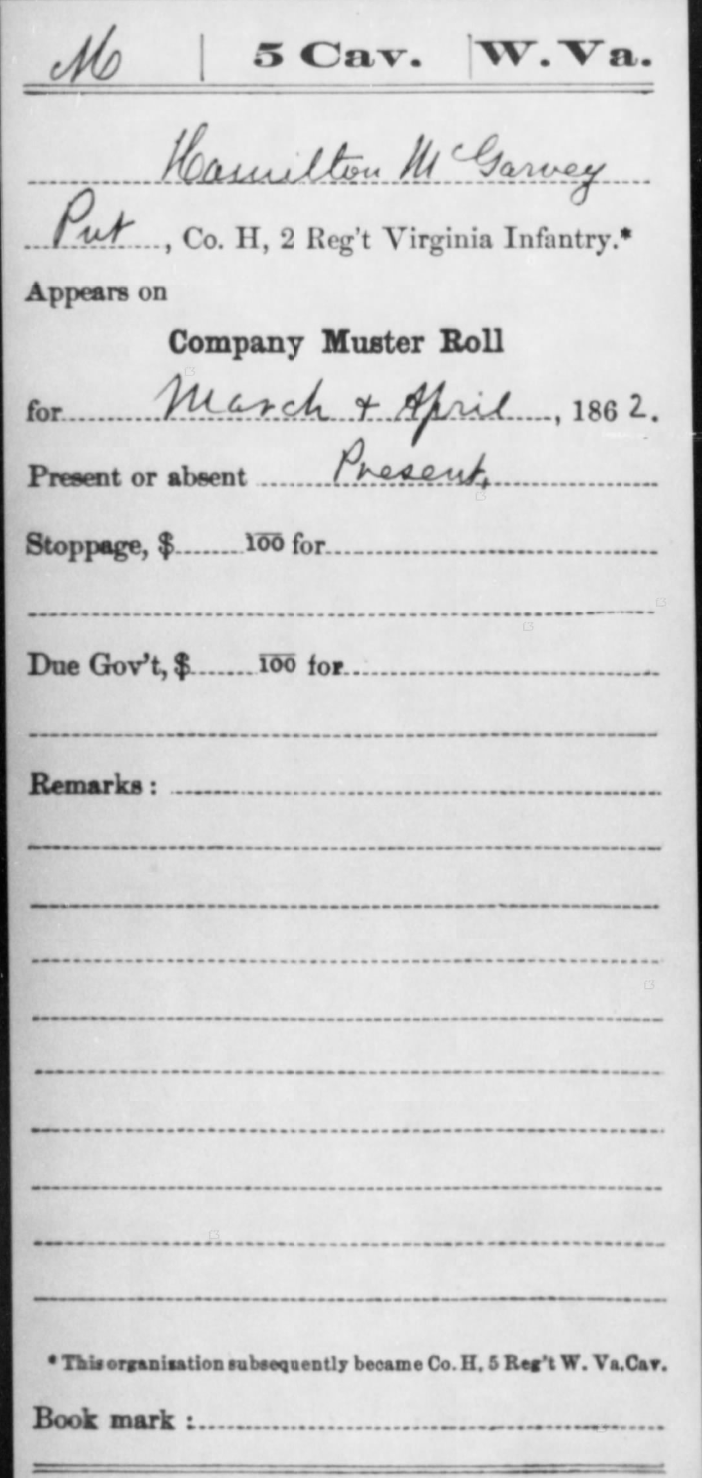 M 5 Cav. W. Va.
Hamilton McGarvey
Pvt, Co. H, 2 Reg't Virginia Infantry.*
Appears on
Company Muster Roll
for March & April, 1862.
Present or absent Present.
Stoppage, $ 100 for
Due Gov't, $ 100 for
Remarks:
* This organization subsequently became Co. H, 5 Reg't W. Va. Cav.
Book mark: